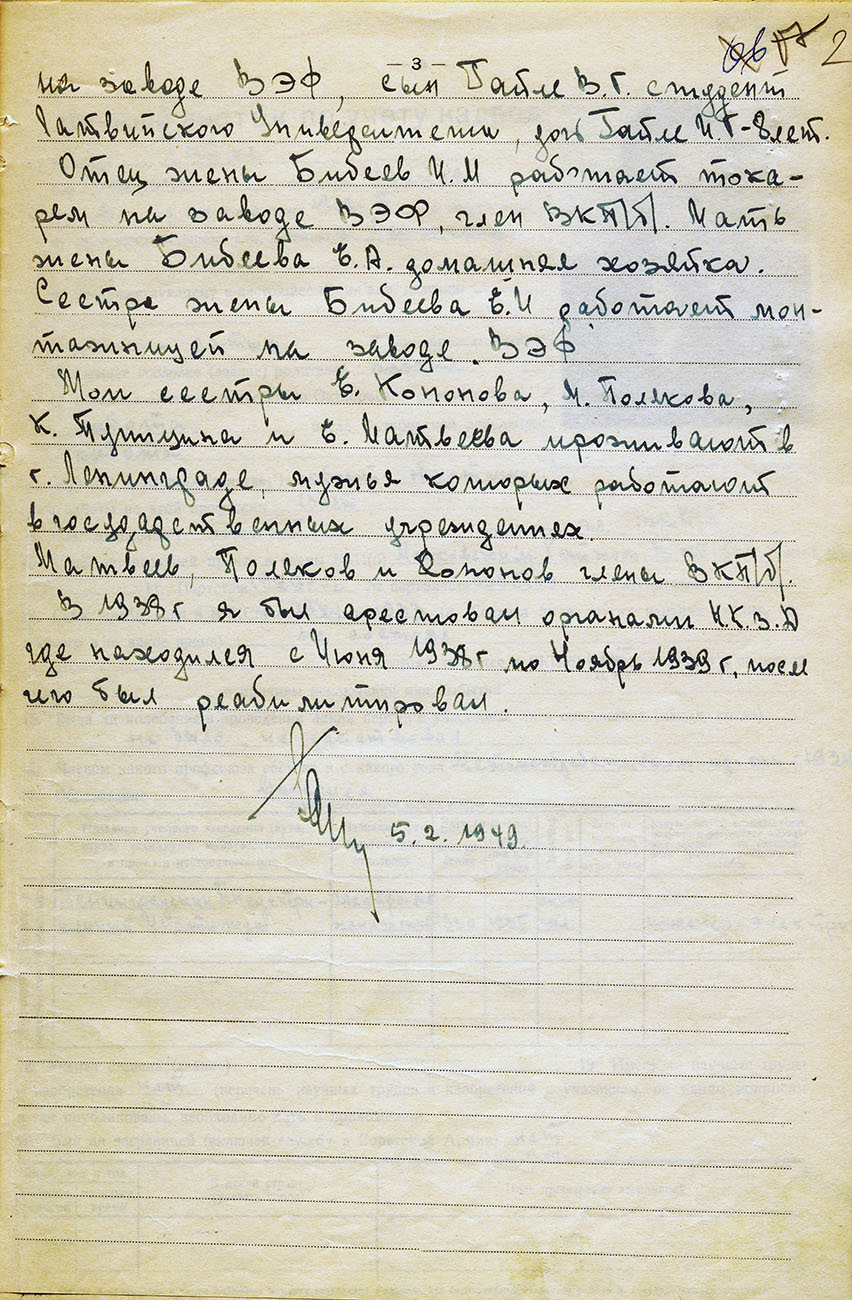 — 3 —
2
на заводе ВЭФ, сын Гайле В.Г. студент
Латвийского Университета, дочь Гайле И.Г - 8 лет.
Отец жены Бибеев И.М работает тока-
рем на заводе ВЭФ, член ВКП/б/. Мать
жены Бибеева Е.А. домашняя хозяйка.
Сестра жены Бибеева Е.И работает мон-
тажницей на заводе ВЭФ
Мои сестры Е. Кононова, М. Полякова,
К. Птицина и Е. Матвеева проживают в
г. Ленинграде, мужья которых работают
в государственных учреждениях.
Матвеев, Поляков и Кононов члены ВКП/б/.
В 1938 г я был арестован органами Н.К.В.Д
где находился с Июня 1938 г по Ноябрь 1939 г, после
чего был реабилитирован.
5.2.1949.